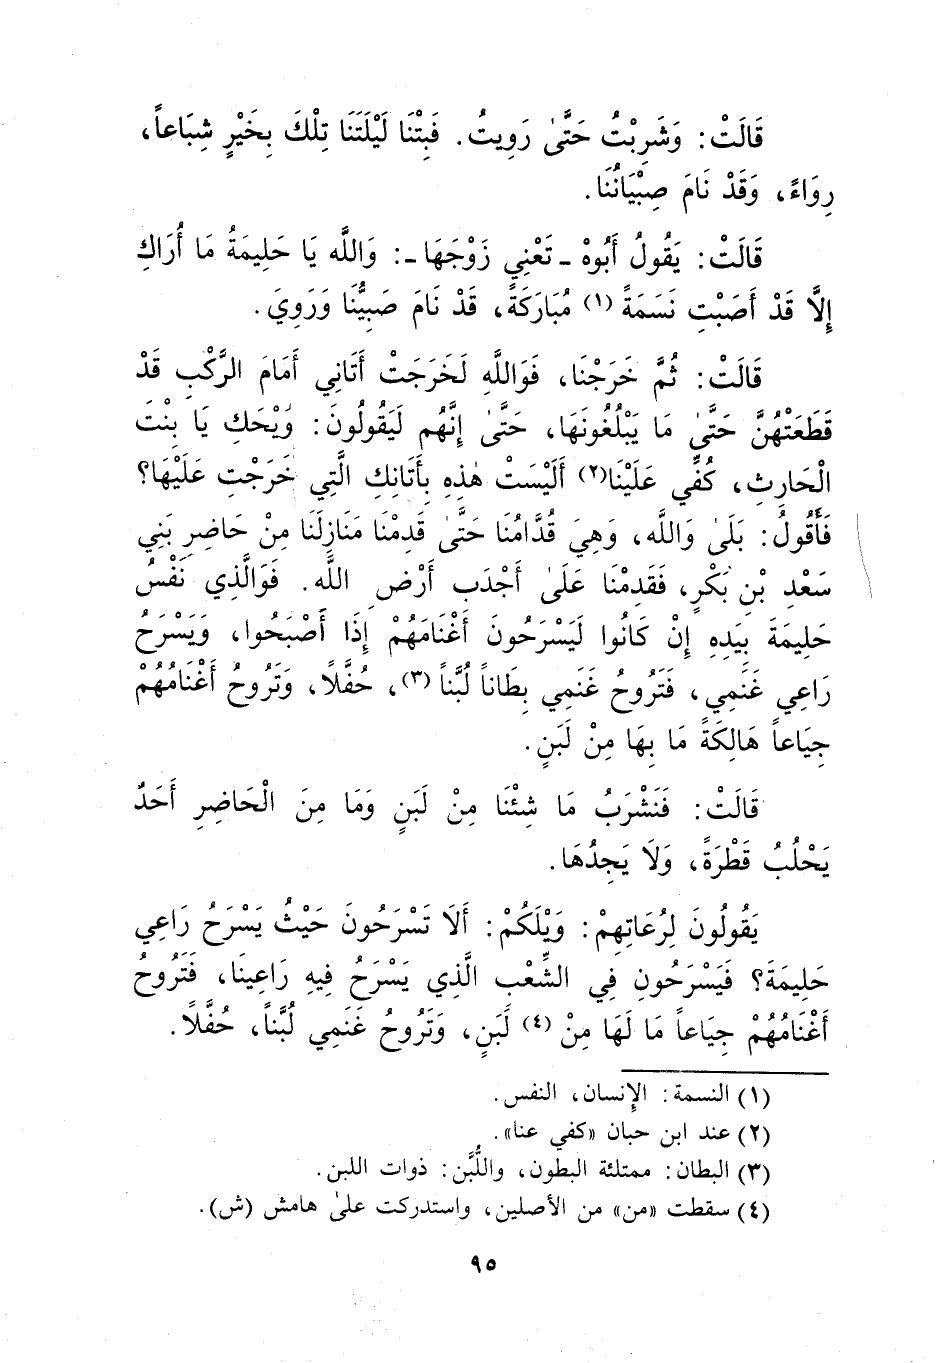 قَالَتْ: وَشَرِبْتُ حَتَّىٰ رَوِيتُ. فَبِتْنَا لَيْلَتَنَا تِلْكَ بِخَيْرٍ شِبَاعاً،
رِوَاءً، وَقَدْ نَامَ صِبْيَانُنَا.
قَالَتْ: يَقُولُ أَبُوهْ ـ تَعْنِي زَوْجَهَا ـ: وَاللَّه يَا حَلِيمَةُ مَا أُرَاكِ
إِلَّا قَدْ أَصَبْتِ نَسَمَةً (١) مُبَارَكَةً، قَدْ نَامَ صَبِيُّنَا وَرَوِيَ.
قَالَتْ: ثُمَّ خَرَجْنَا، فَوَاللَّهِ لَخَرَجَتْ أَتَانِي أَمَامَ الرَّكْبِ قَدْ
قَطَعَتْهُنَّ حَتَّىٰ مَا يَبْلُغُونَهَا، حَتَّىٰ إِنَّهُم لَيَقُولُونَ: وَيْحَكِ يَا بِنْتَ
الْحَارِثِ، كُفِّي عَلَيْنَا(٢) أَلَيْسَتْ هٰذِهِ بِأَتَانِكِ الَّتِي خَرَجْتِ عَلَيْهَا؟
فَأَقُولُ: بَلَىٰ وَاللَّه، وَهِيَ قُدَّامُنَا حَتَّىٰ قَدِمْنَا مَنَازِلَنَا مِنْ حَاضِرِ بَنِي
سَعْدِ بْنِ بَكْرٍ، فَقَدِمْنَا عَلَىٰ أَجْدَبِ أَرْضِ اللَّهِ. فَوَالَّذِي نَفْسُ
حَلِيمَةَ بِيَدِهِ إِنْ كَانُوا لَيَسْرَحُونَ أَغْنَامَهُمْ إِذَا أَصْبَحُوا، وَيَسْرَحُ
رَاعِي غَنَمِي، فَتَرُوحُ غَنَمِي بِطَاناً لُبَّناً (٣)، حُفَّلاً، وَتَرُوحُ أَغْنَامُهُمْ
جِيَاعاً هَالِكَةً مَا بِهَا مِنْ لَبَنٍ.
قَالَتْ: فَنَشْرَبُ مَا شِئْنَا مِنْ لَبَنٍ وَمَا مِنَ الْحَاضِرِ أَحَدٌ
يَحْلُبُ قَطْرَةً، وَلَا يَجِدُهَا.
يَقُولُونَ لِرُعَاتِهِمْ: وَيْلَكُمْ: أَلَا تَسْرَحُونَ حَيْثُ يَسْرَحُ رَاعِي
حَلِيمَةَ؟ فَيَسْرَحُونِ فِي الشِّعْبِ الَّذِي يَسْرَحُ فِيهِ رَاعِينَا، فَتَرُوحُ
أَغْنَامُهُمْ جِيَاعاً مَا لَهَا مِنْ (٤) لَبَنٍ، وَتَرُوحُ غَنَمِي لُبَّناً، حُفَّلاً.
(١) النسمة: الإنسان، النفس.
(٢) عند ابن حبان «كفي عنا».
(٣) البطان: ممتلئة البطون، واللُّبَّن: ذوات اللبن.
(٤) سقطت «من» من الأصلين، واستدركت علىٰ هامش (ش).
٩٥